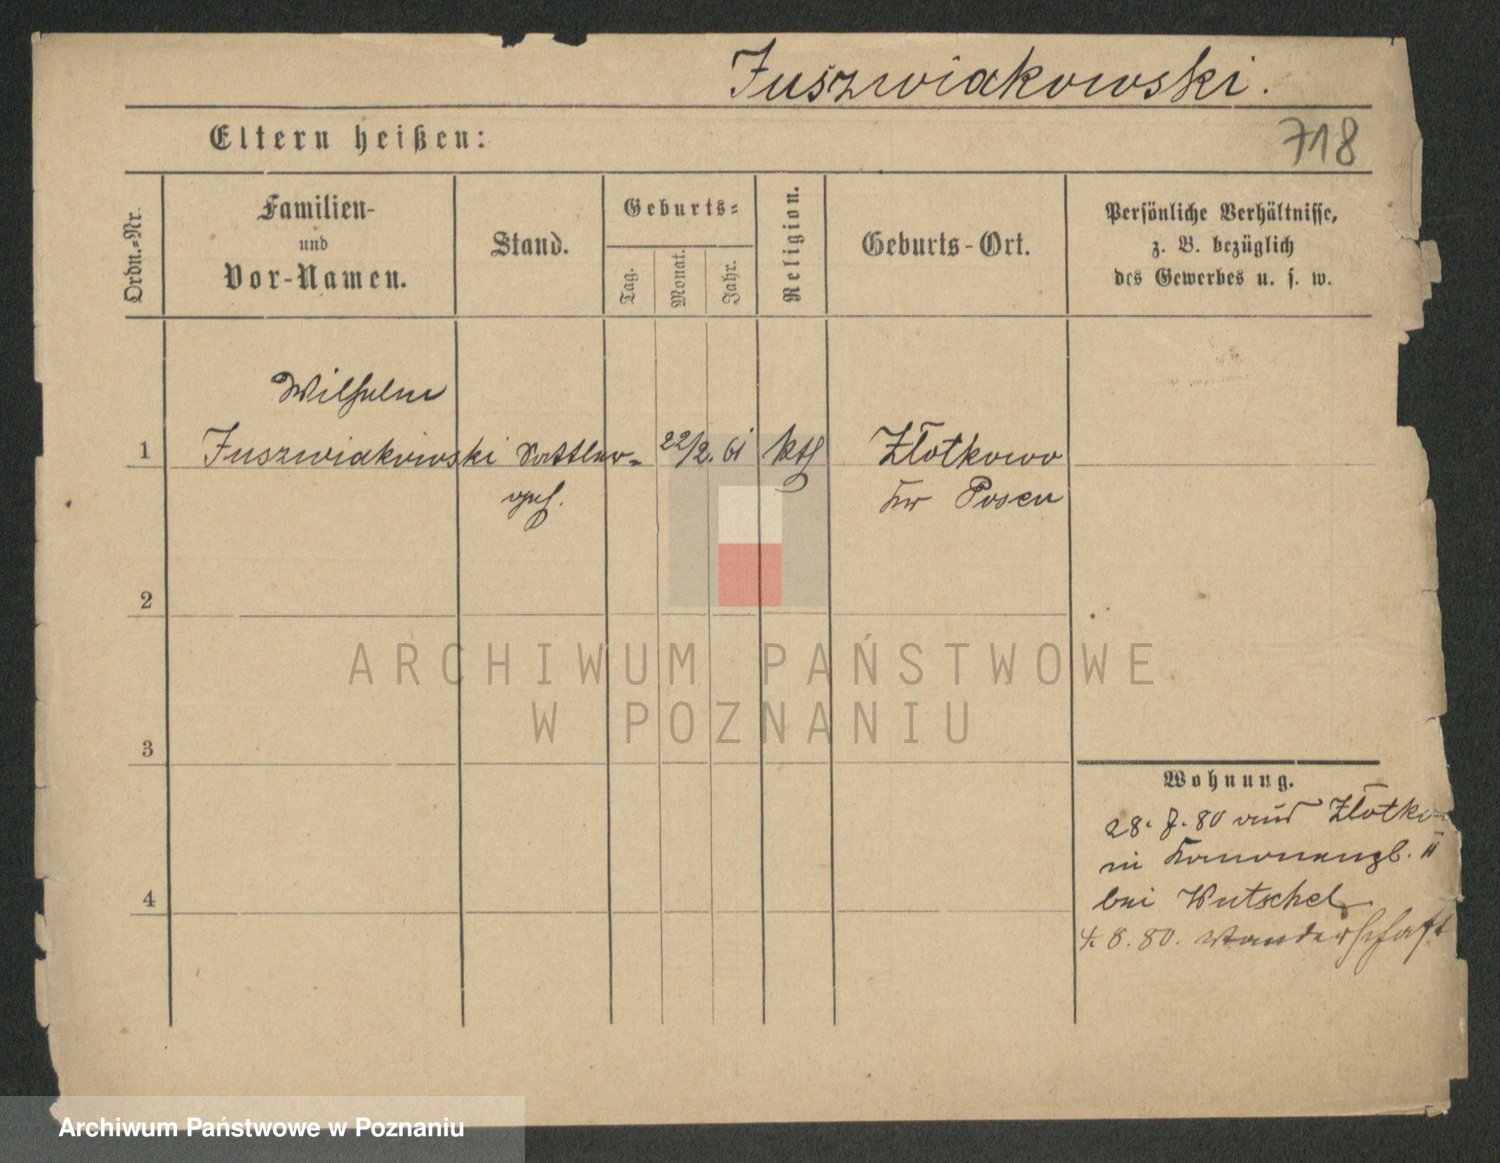 Juszwiakowski.
718
Eltern heißen:
Ordn.-Nr.
Familien-
und
Vor-Namen.
Stand.
Geburts-
Tag.
Monat.
Jahr.
Religion.
Geburts-Ort.
Persönliche Verhältnisse,
z. B. bezüglich
des Gewerbes u. s. w.
Wilhelm
1 Juszwiakowski Sattler- 22/2. 61 kth Złotkowo
Kr Posen
2
3
4
Wohnung.
28. 7. 80 aus Złotko
in II
bei Kutschel
4. 8. 80. Wanderschaft
ARCHIWUM PAŃSTWOWE
W POZNANIU
Archiwum Państwowe w Poznaniu